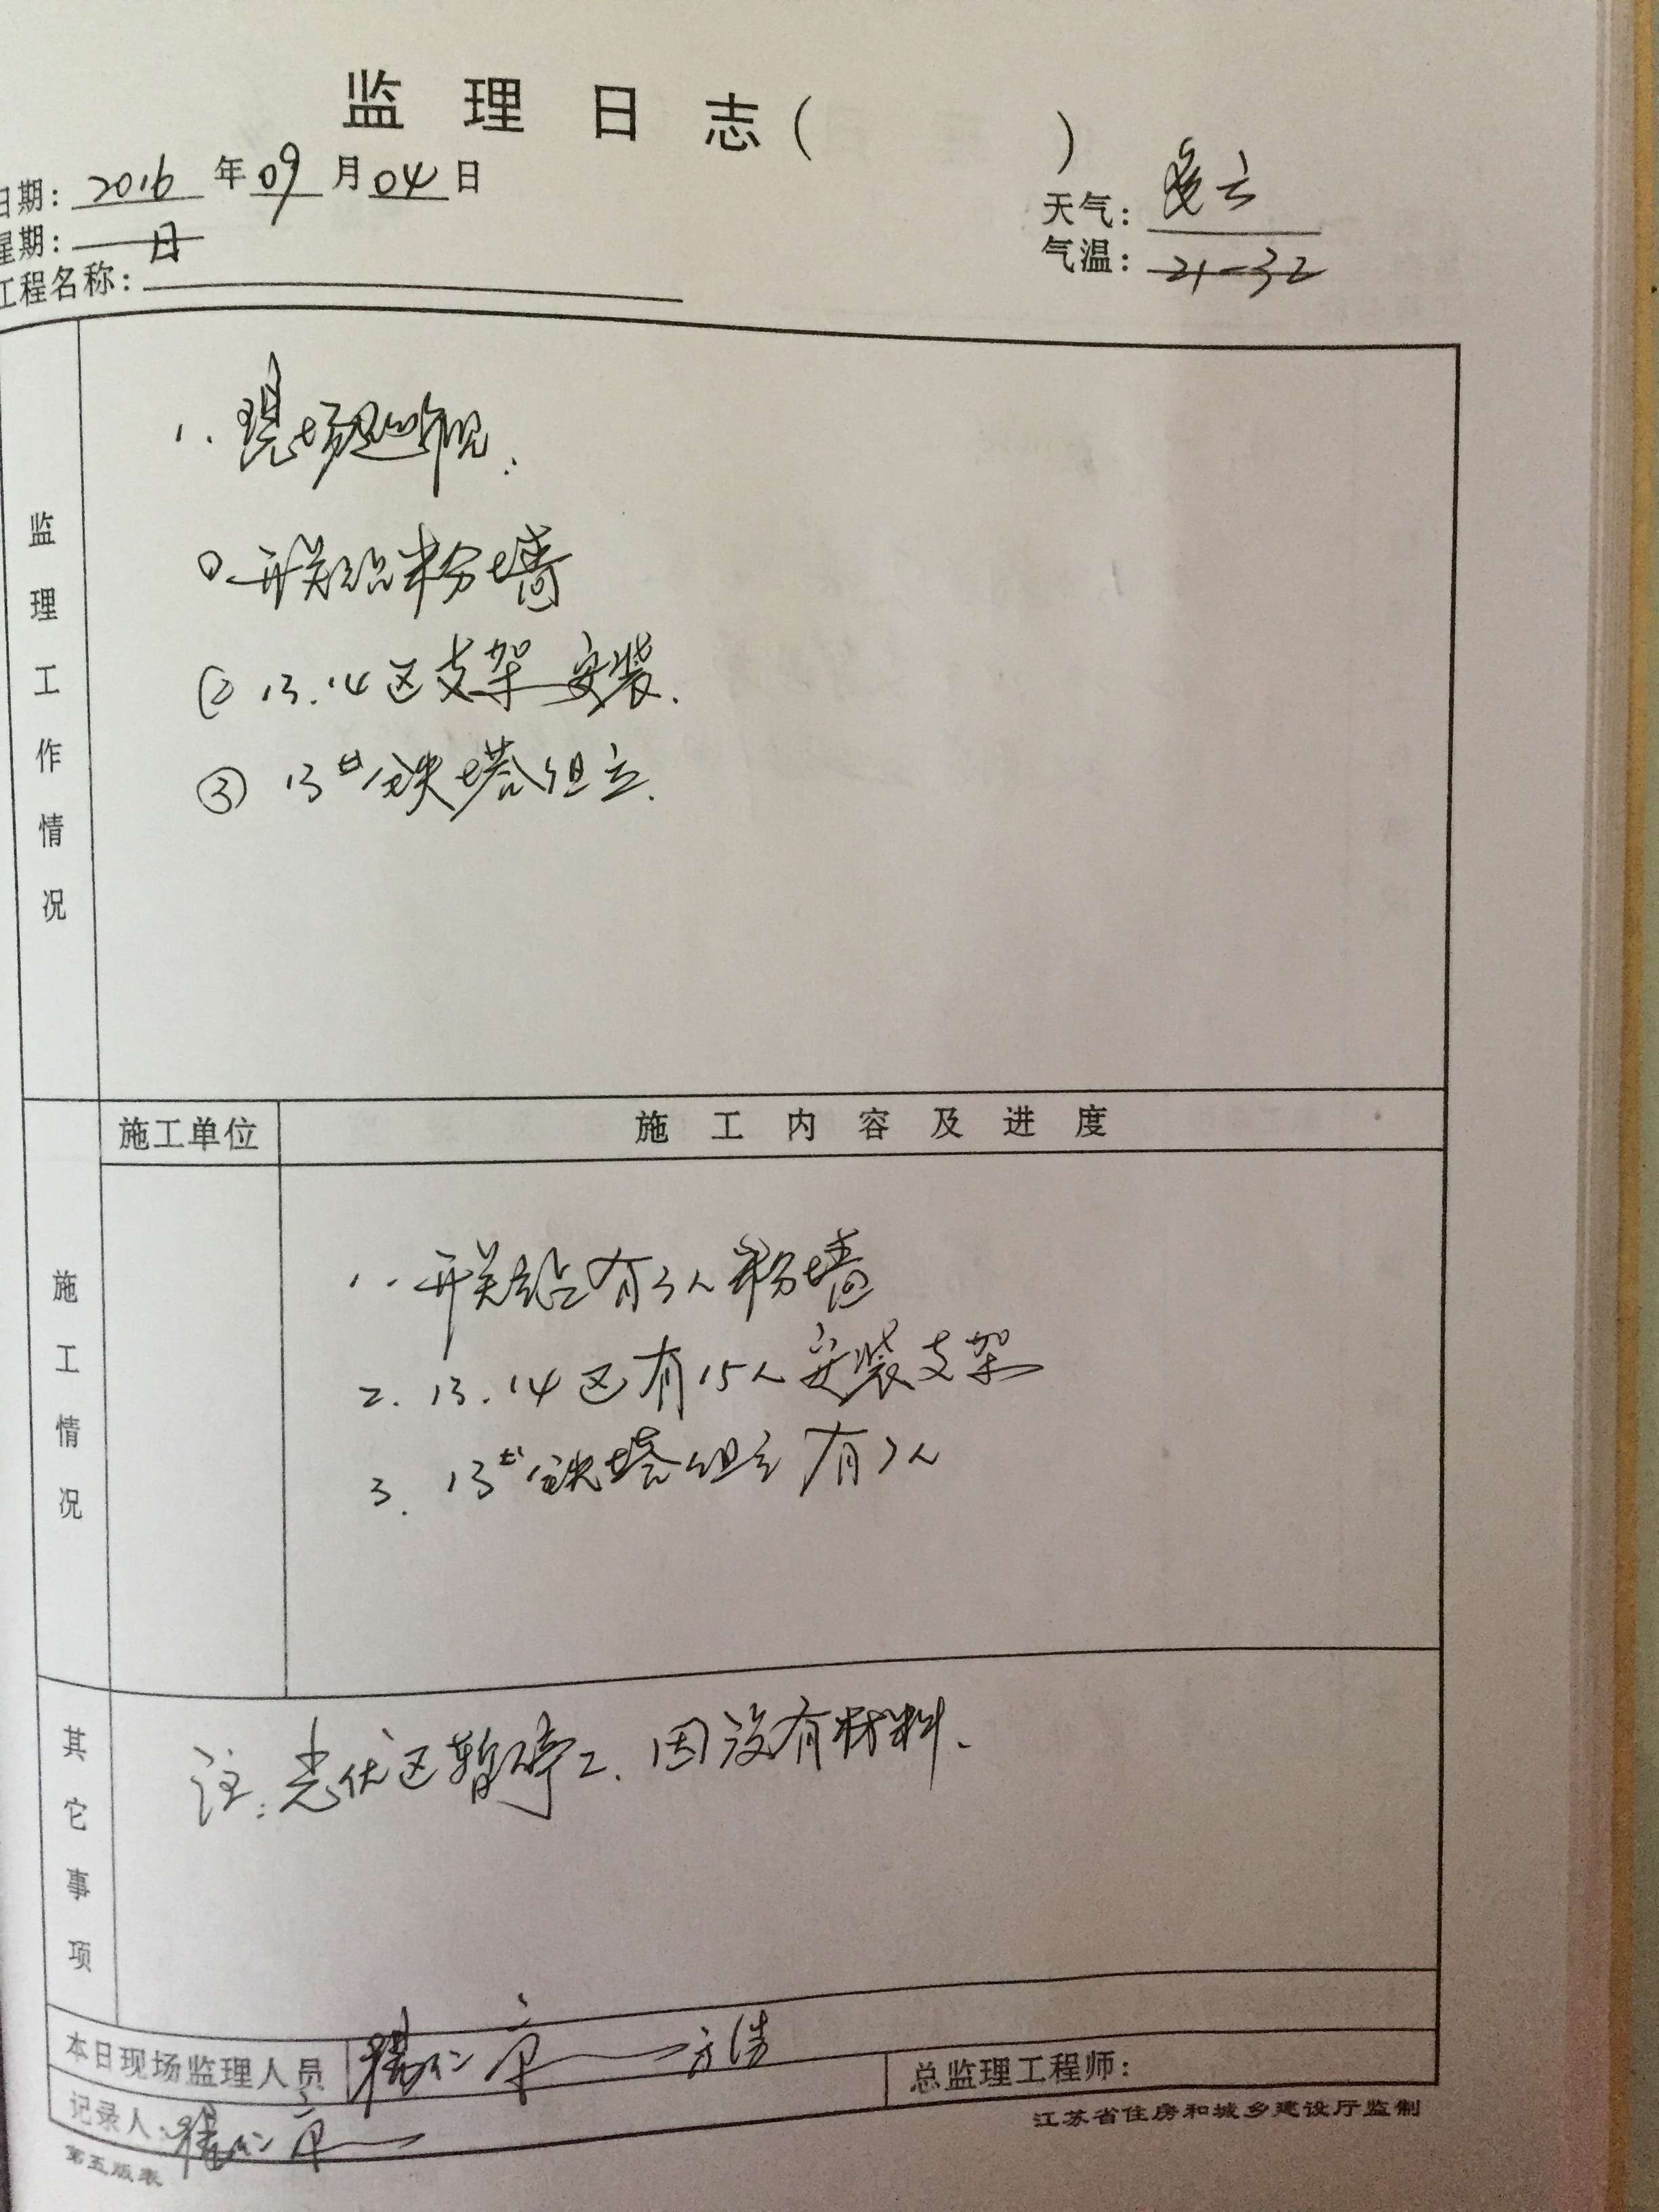 监理日志（ ）
日期：2016年09月04日
星期：日
天气：多云
气温：21-32
工程名称：
监理工作情况
1、现场巡视：
① 开关站粉墙
② 13.14区支架安装.
③ 13#铁塔组立.
施工单位
施工内容及进度
施工情况
1、开关站有3人粉墙
2. 13.14区有15人安装支架
3. 13#铁塔组立有7人
其它事项
注：光伏区暂停工、因没有材料、
本日现场监理人员
方浩
总监理工程师：
记录人：
江苏省住房和城乡建设厅监制
第五版表